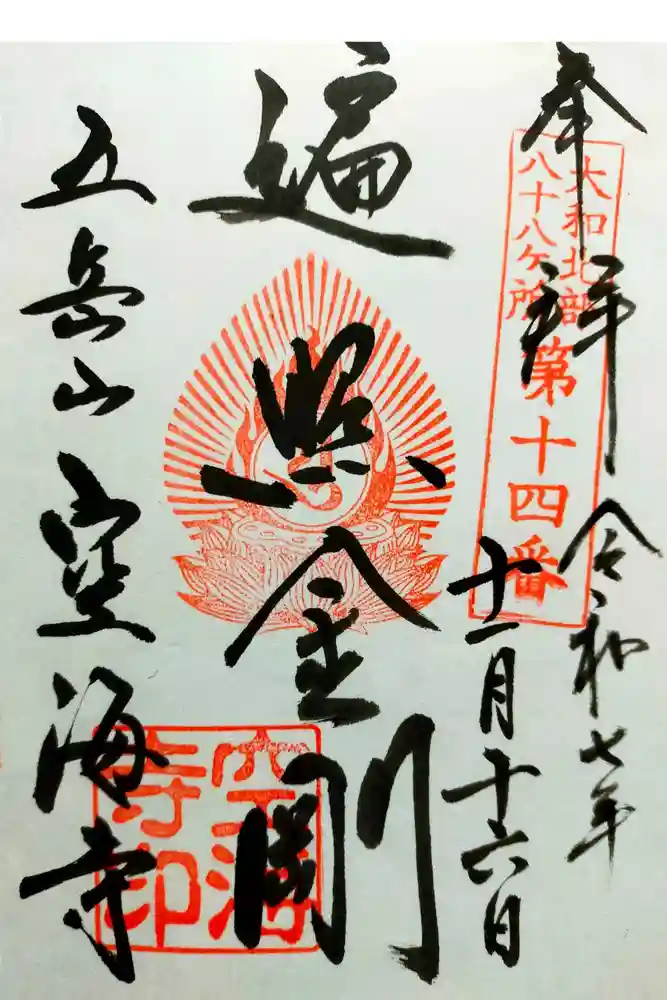 奉拝
令和七年
十一月十六日
大和北部
八十八ヶ所
第十四番
遍照金剛
五岳山空海寺
空海
寺印